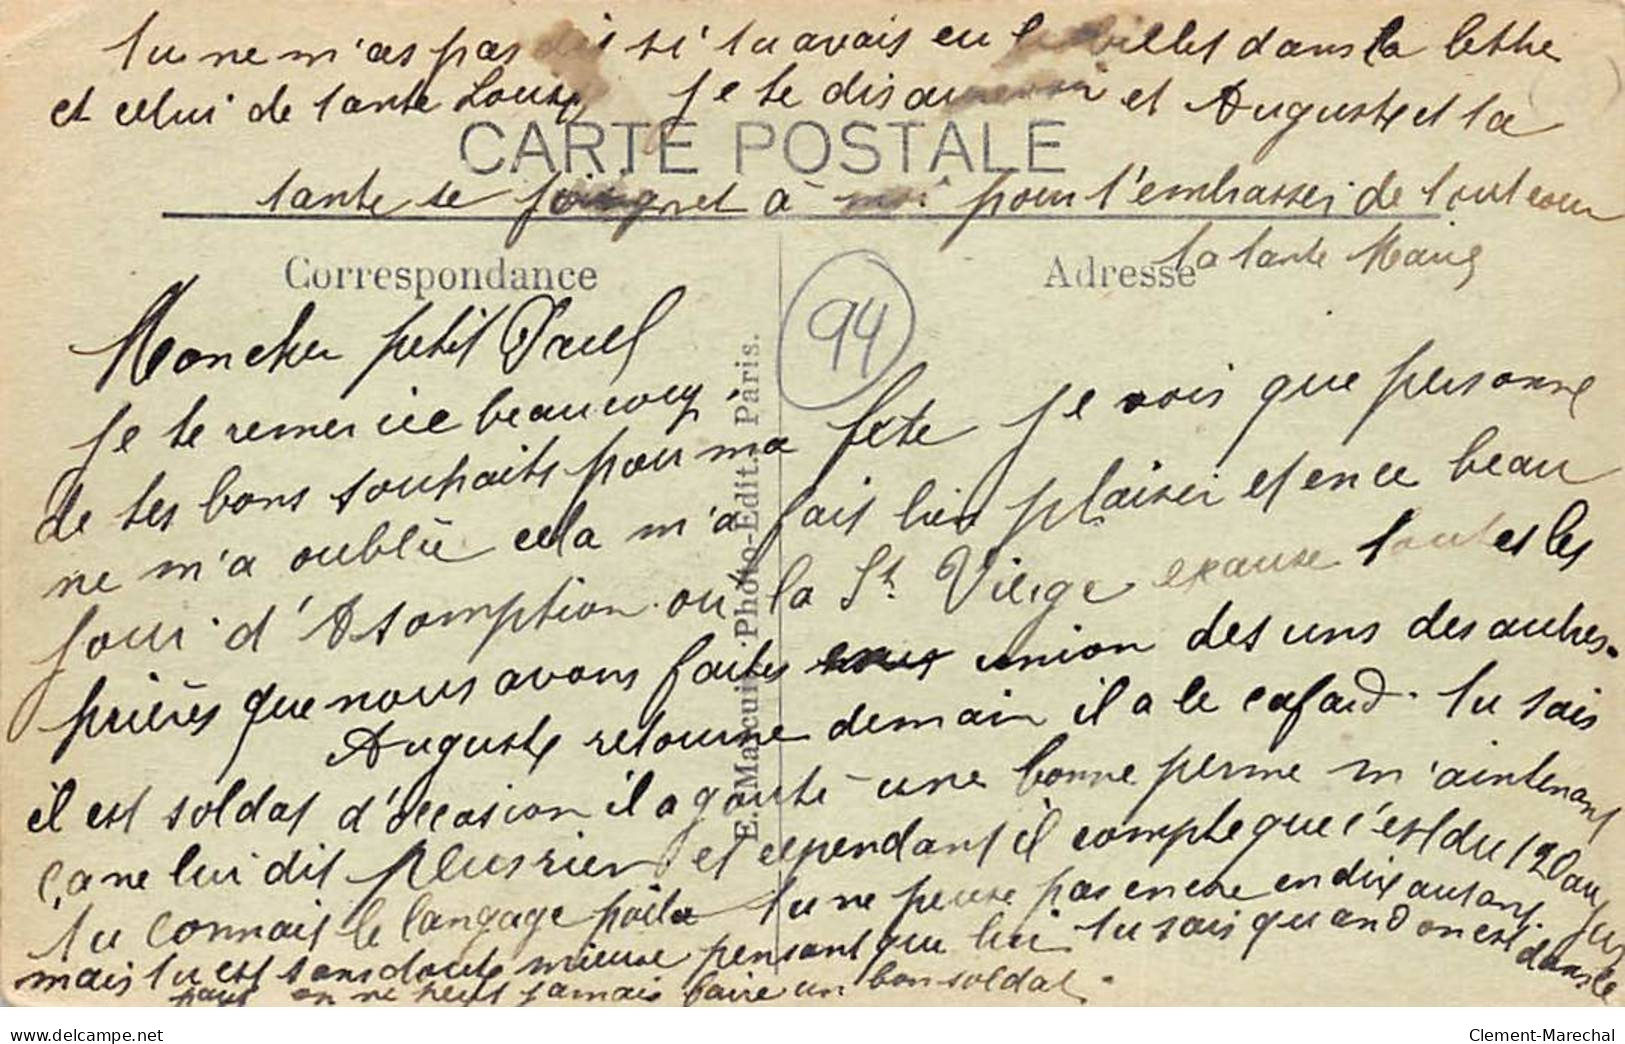 tu ne m'as pas dis si tu avais eu billet dans la lettre
et celui de tante Louise Je te dis aurevoir et Auguste et la
CARTE POSTALE
tante se joignet à moi pour t'embrasser de tout cœur
ta tante Marie
Correspondance
Adresse
94
Mon cher petit Paul
Je te remercie beaucoup
de tes bons souhaits pour ma fete je vois que personne
ne m'a oublié cela m'a fait bien plaisir et en ce beau
jour d'Asomption ou la St Vierge exause toutes les
prières que nous avons faites union des uns des autres.
Auguste retourne demain il a le cafard. Tu sais
il est soldat d'occasion il a gouté une bonne perme m'aintenant
ça ne lui dit plus rien et cependant il compte que c'est du 120 au jus
tu connait le langage poilu tu ne peuse pas encore en dire autant
mais tu est sans doute mieuse pensant que lui tu sais quand on est dans le
pays on ne peut jamais faire un bon soldat.
E. Marcuit. Photo-Edit. Paris.
www.delcampe.net
Clement-Marechal